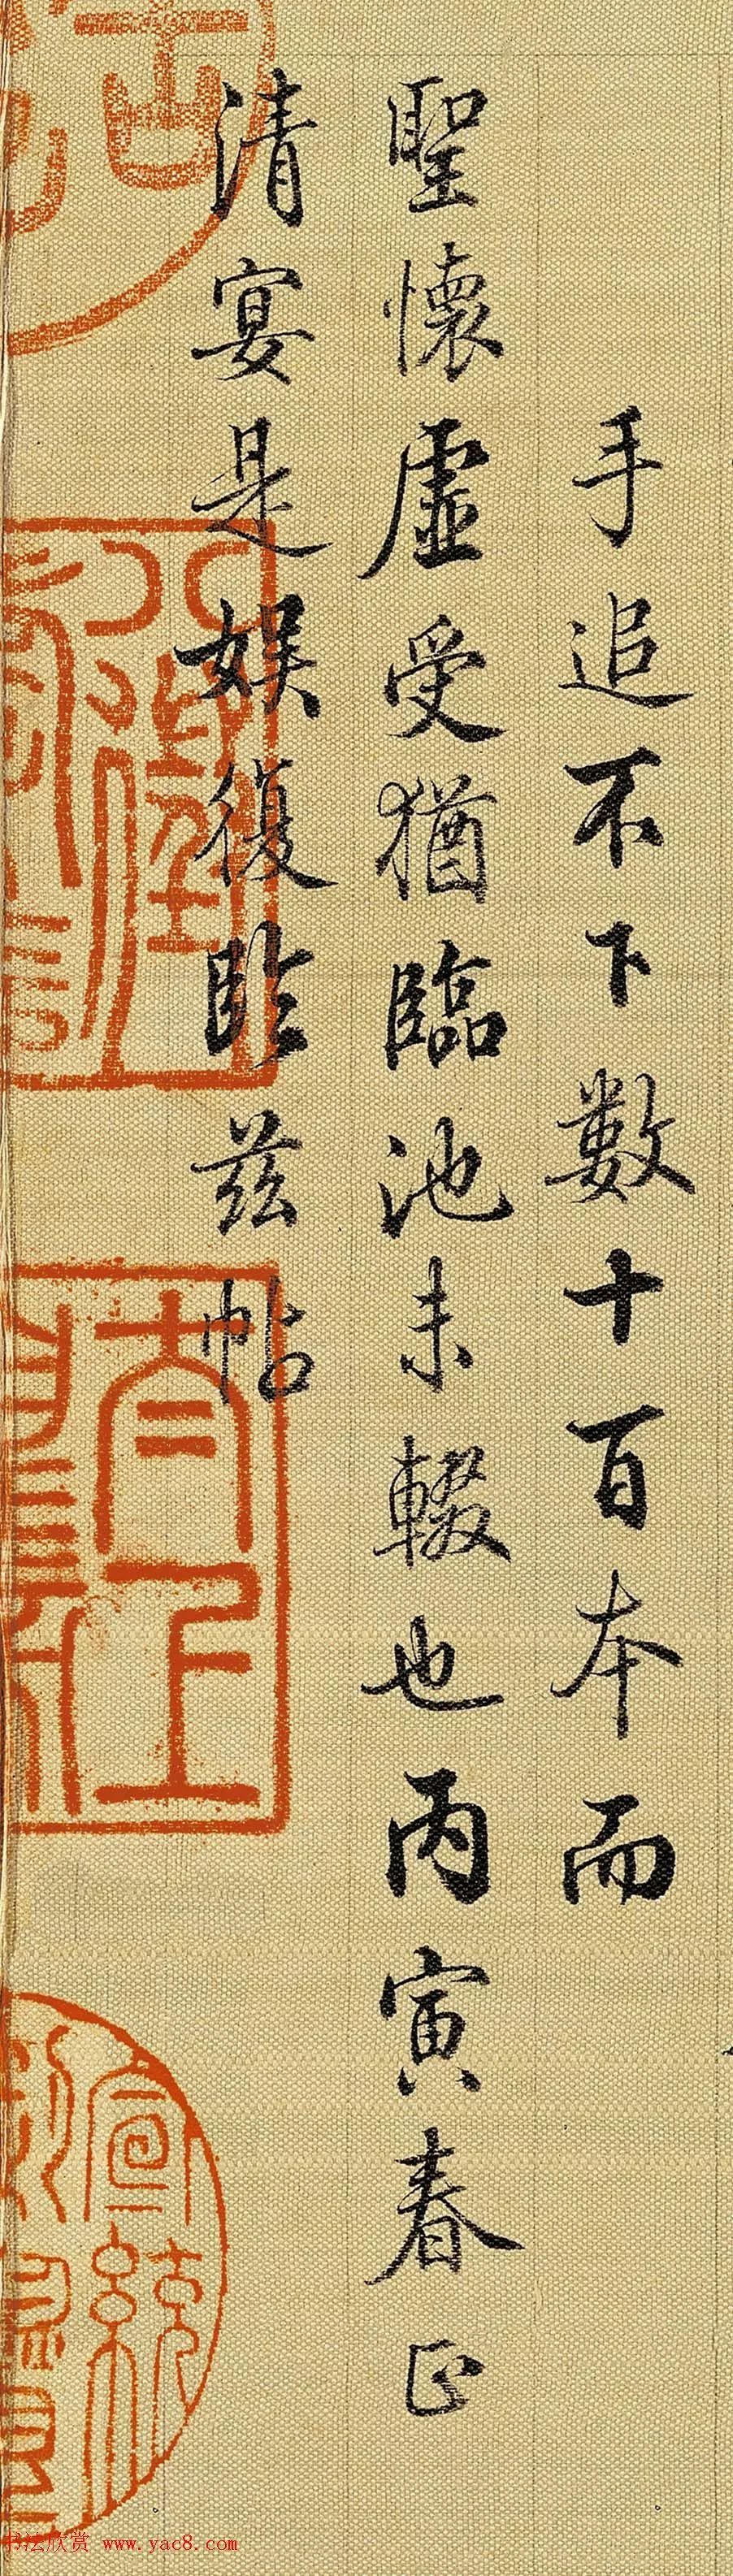 手追不下數十百本而
聖懷虛受猶臨池未輟也丙寅春正
清宴是娛復臨茲帖
太上
宣統
书法欣赏 www.yac8.com